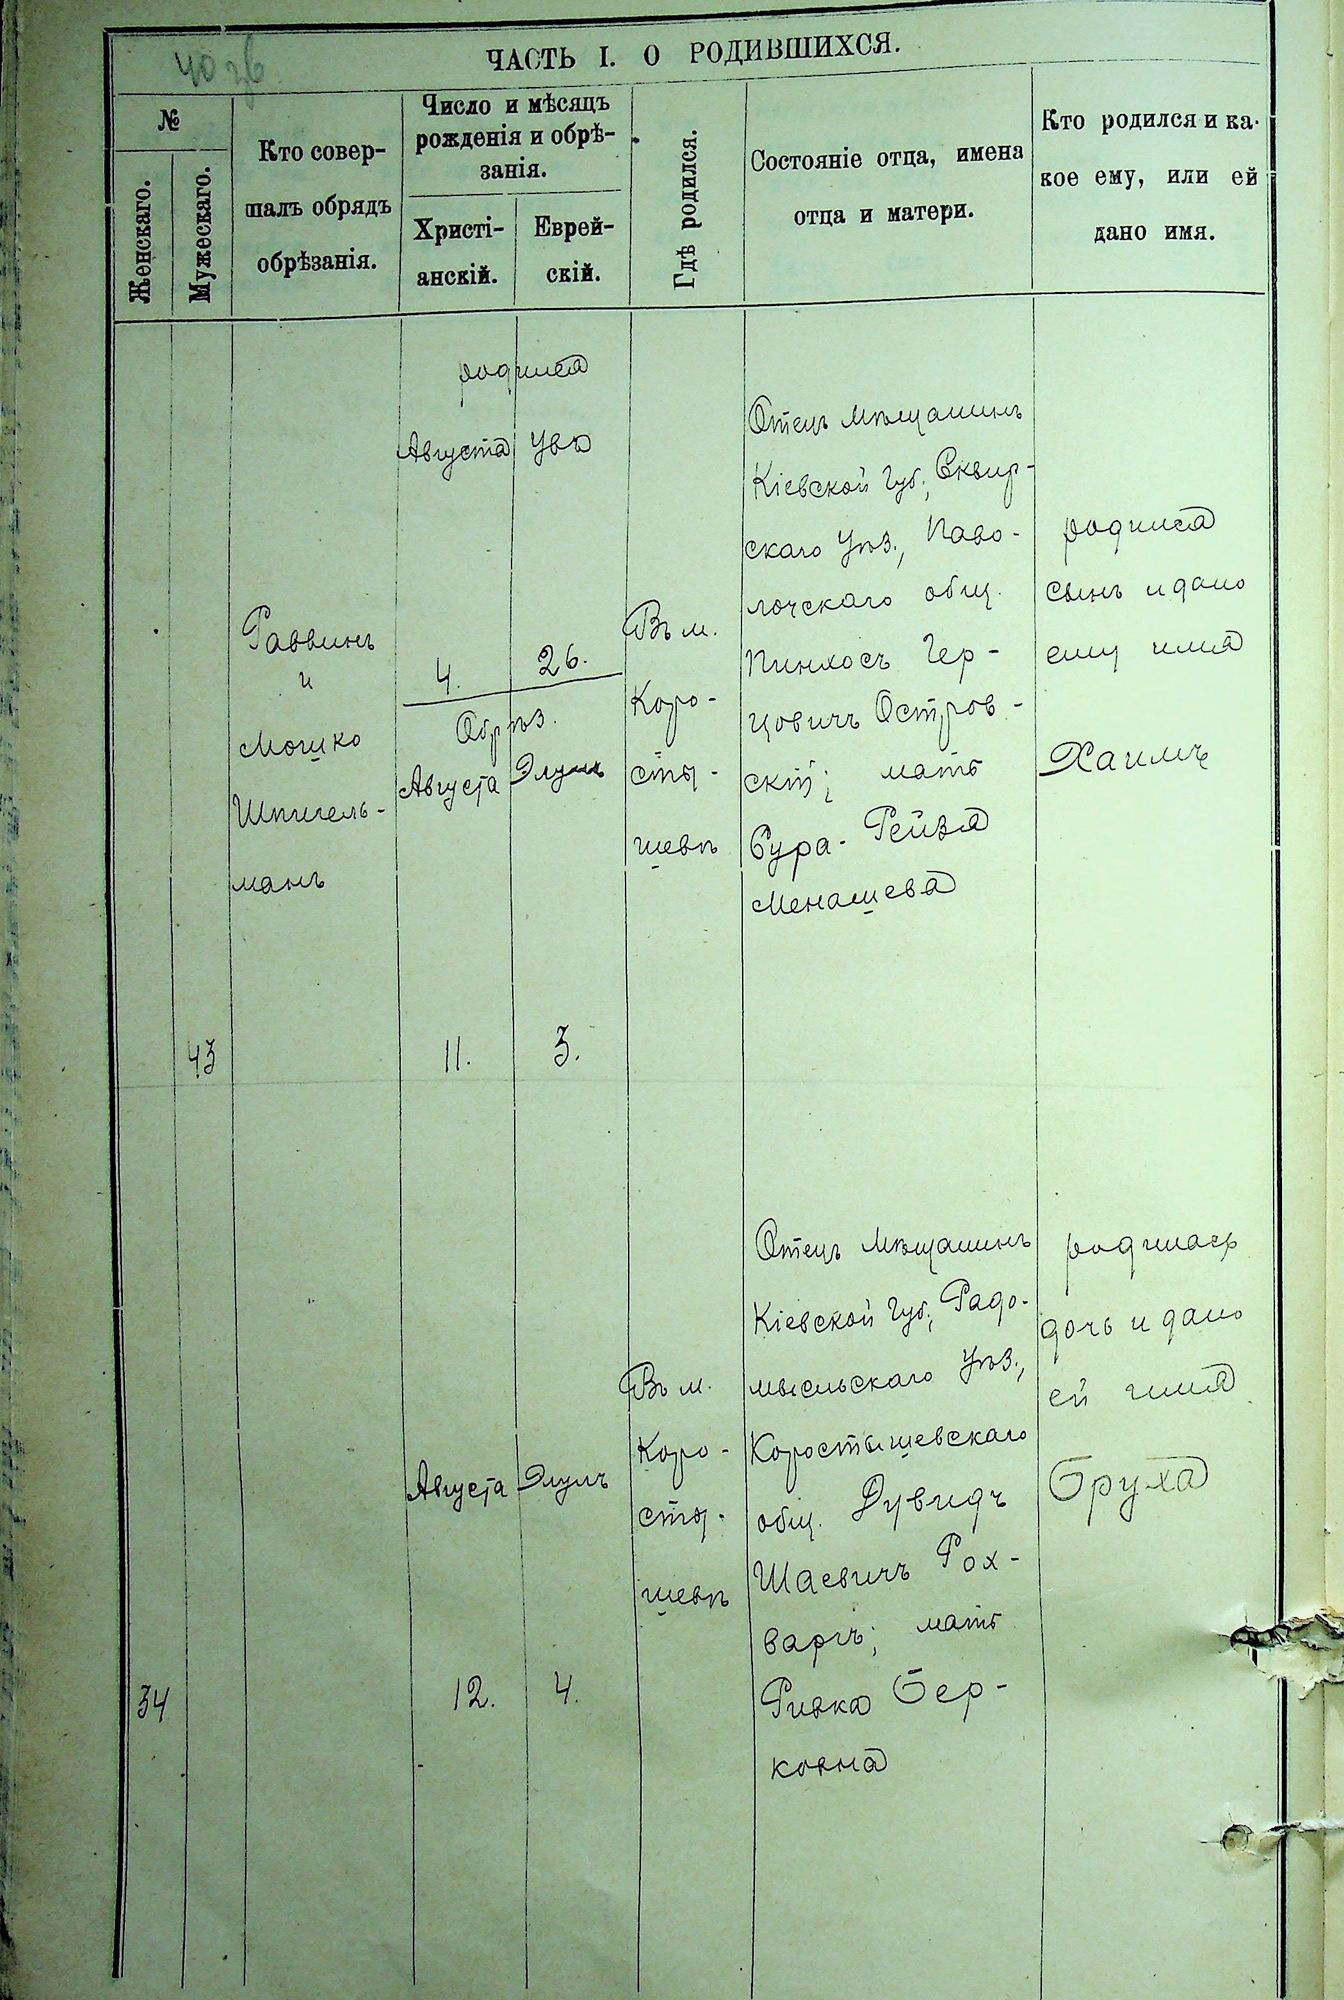 40 зв
ЧАСТЬ I. О РОДИВШИХСЯ.
№
Женскаго.
Мужескаго.
Кто совер-
шалъ обрядъ
обрѣзанія.
Число и мѣсяцъ
рожденія и обрѣ-
занія.
Христі-
анскій.
Еврей-
скій.
Гдѣ родился.
Состояніе отца, имена
отца и матери.
Кто родился и ка-
кое ему, или ей
дано имя.
43
Раввинъ
и
Мошко
Шпигель-
манъ
родился
Августа
4.
Ува
26.
Обрѣз.
Августа
11.
Элулъ
3.
Въ м.
Коро-
сты-
шевѣ
Отецъ Мѣщанинъ
Кіевской Губ., Сквир-
скаго Уѣз., Паво-
лочскаго общ.
Пинхосъ Гер-
цовичъ Остров-
скій; мать
Сура-Рейзя
Менашева
родился
сынъ и дано
ему имя
Хаимъ
34
Августа
12.
Элулъ
4.
Въ м.
Коро-
сты-
шевѣ
Отецъ Мѣщанинъ
Кіевской Губ., Радо-
мысльскаго Уѣз.,
Коростышевскаго
общ. Дувидъ
Шаевичъ Рох-
варгъ; мать
Ривка Бер-
ковна
родилась
дочь и дано
ей имя
Бруха